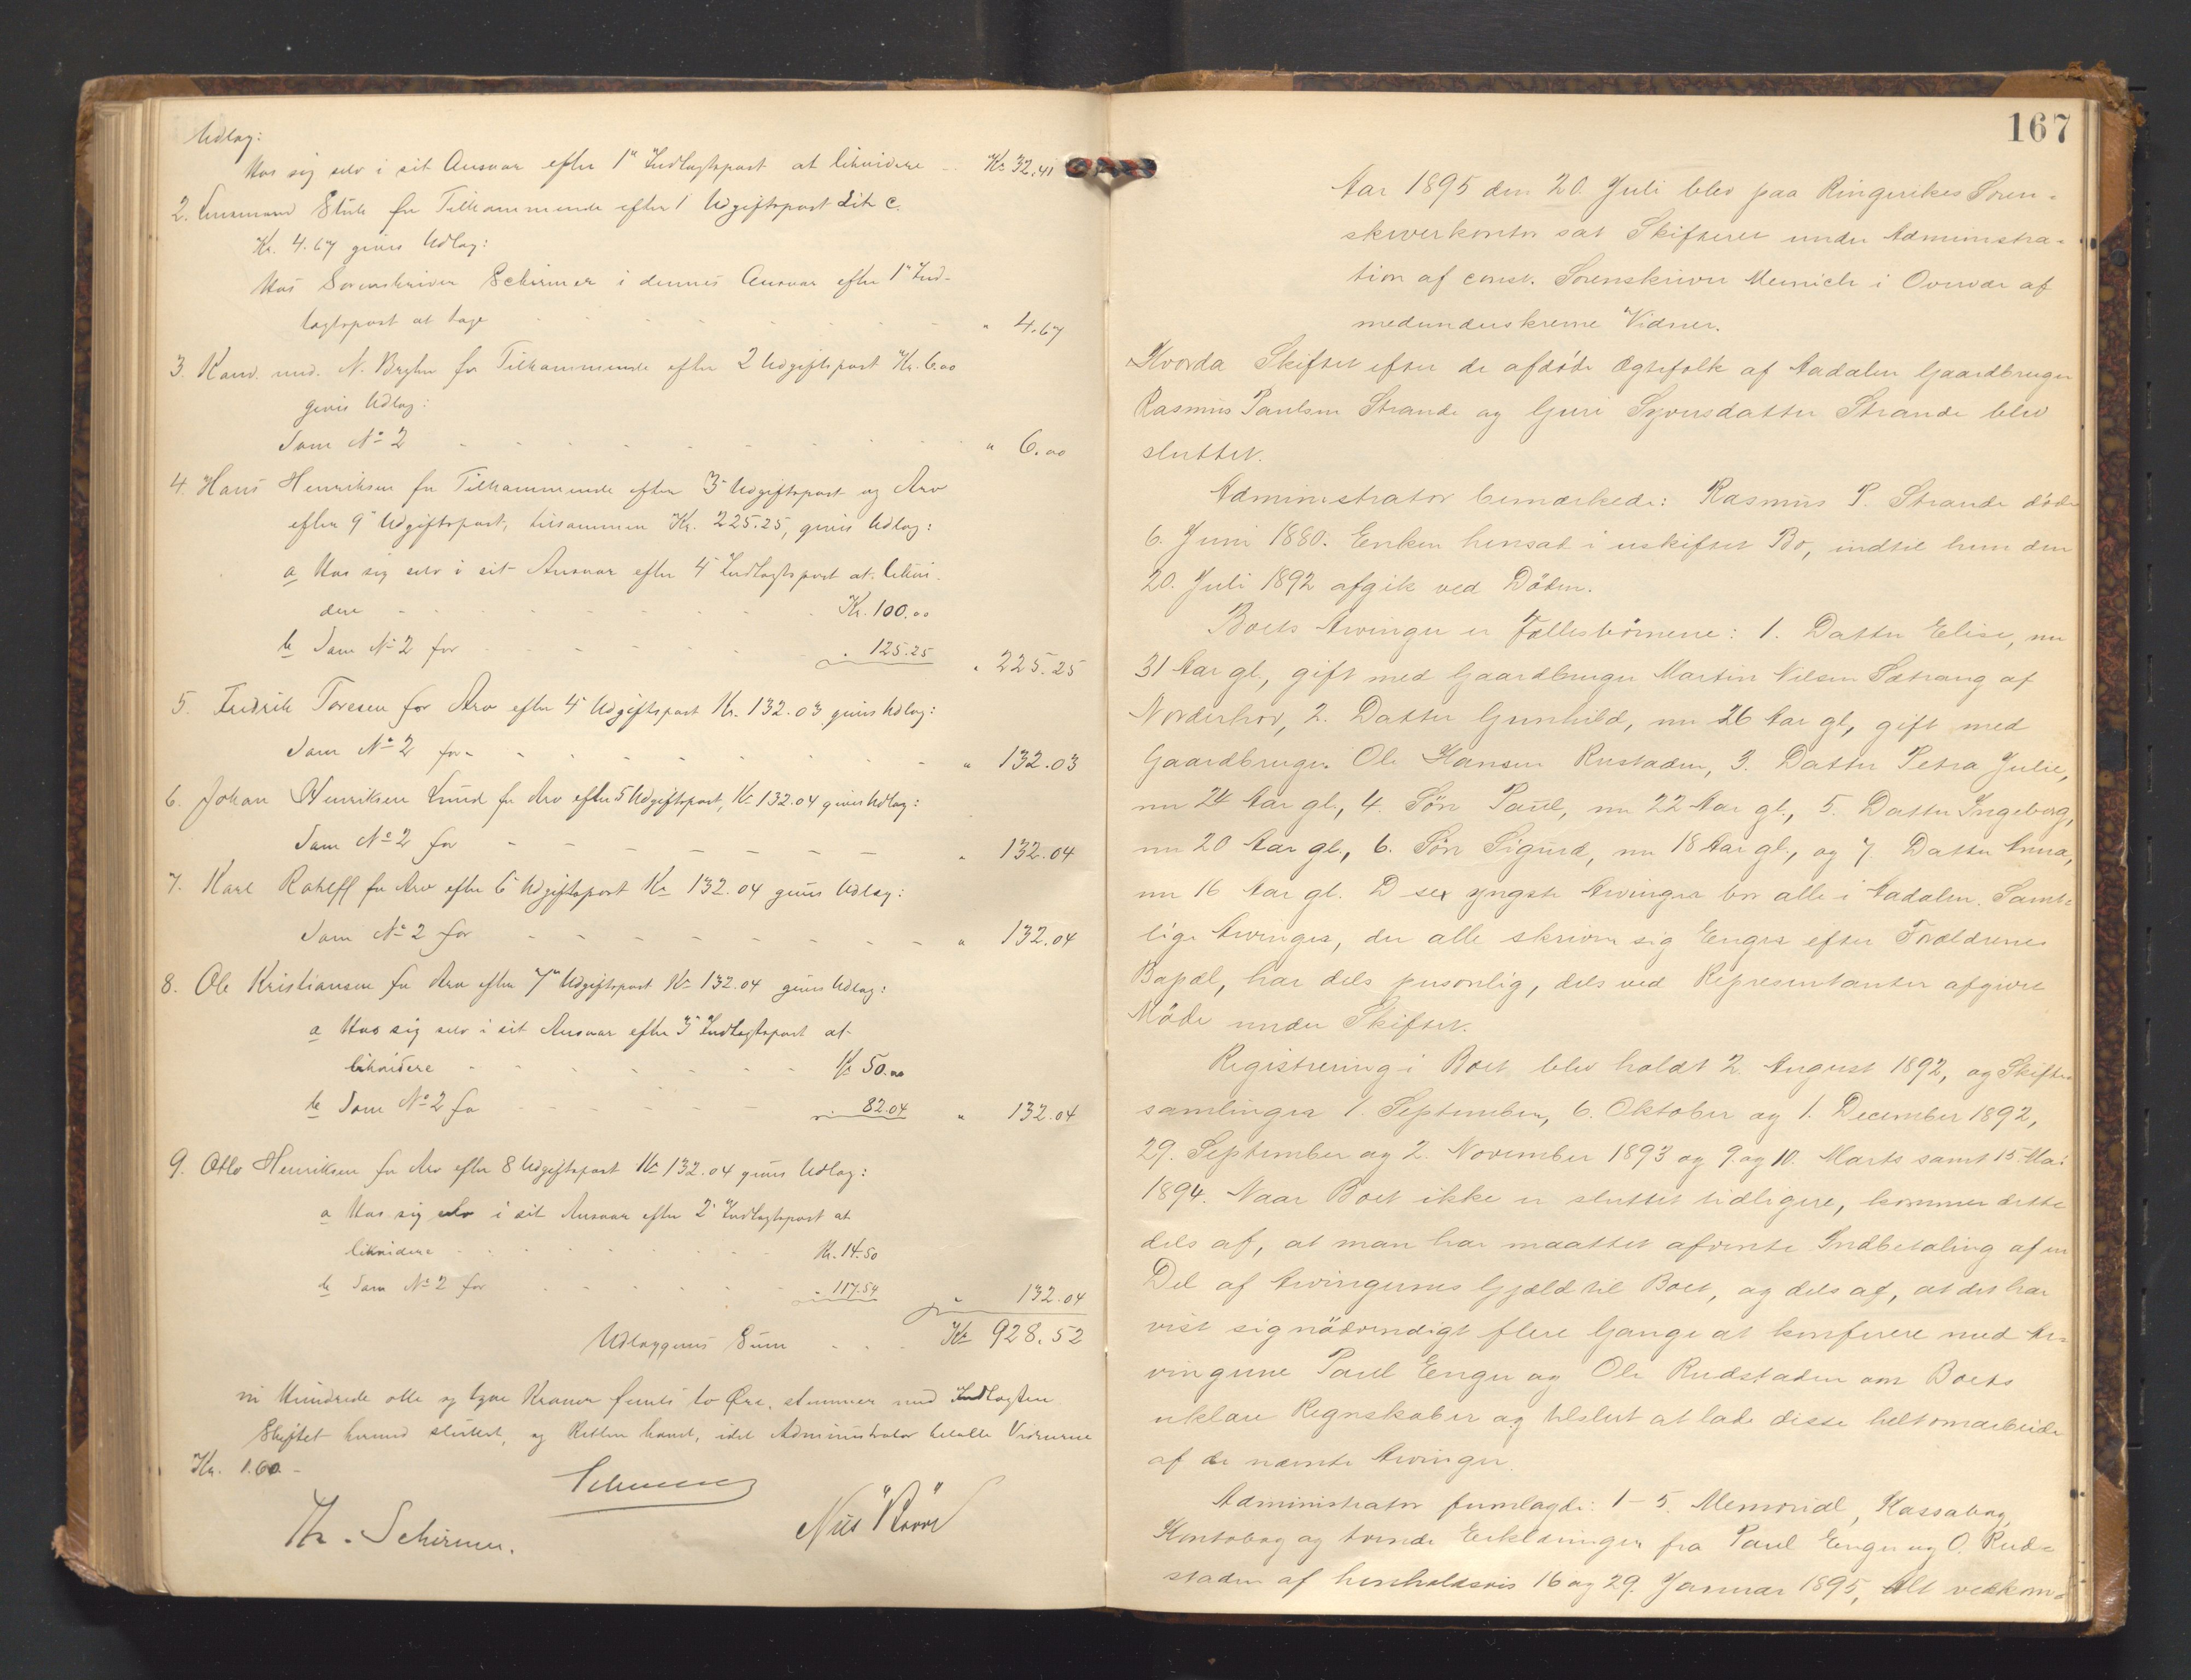 Udlæg:
Hos sig selv i sit Ansvar efter 1" Indtægtspost at likvidere - Kr. 32.41
2. Lensmand Stub for Tilkommende efter 1 Udgiftspost Lit c.
Kr. 4.67 gives Udlæg:
Hos Sorenskriver Schirmer i dennes Ansvar efter 1" Ind-
tægtspost at tage " 4.67
3. Kand. med. N. for Tilkommende efter 2 Udgiftspost Kr. 6.00
gives Udlæg:
Som No 2 " 6.00
4. Hans Henriksen for Tilkommende efter 3" Udgiftspost og Arv
efter 9" Udgiftspost, tilsammen Kr. 225.25, gives Udlæg:
a Hos sig selv i sit Ansvar efter 4" Indtægtspost at likvi-
dere Kr. 100.00
b Som No 2 for " 125.25 " 225.25
5. Fredrik Toresen for Arv efter 4" Udgiftspost Kr. 132.03 gives Udlæg:
Som No 2 for " 132.03
6. Johan Henriksen Lund for Arv efter 5 Udgiftspost, Kr 132.04 gives Udlæg:
Som No 2 for " 132.04
7. Karl Roleff for Arv efter 6" Udgiftspost Kr 132.04 gives Udlæg:
Som No 2 for " 132.04
8. Ole Kristiansen for Arv efter 7" Udgiftspost Kr 132.04 gives Udlæg:
a Hos sig selv i sit Ansvar efter 3" Indtægtspost at
likvidere Kr 50.00
b Som No 2 for " 82.04 " 132.04
9. Otto Henriksen for Arv efter 8 Udgiftspost Kr 132.04 gives Udlæg:
a Hos sig selv i sit Ansvar efter 2" Indtægtspost at
likvidere Kr. 14.50
b Som No 2 for " 117.54 " 132.04
Udlæggenes Sum Kr 928.52
ni Hundrede otte og tyve Kroner femti to Øre, stemmer med Indtægten
Skiftet hermed sluttet, og Retten hævet, idet Administrator betalte Vidnerne
Kr. 1.60.-
Schirmer
Th. Schirmer. Nils
167
Aar 1895 den 20. Juli blev paa Ringerikes Soren-
skriverkontor sat Skifteret under Administra-
tion af const. Sorenskriver Meinich i Overvær af
medunderskrevne Vidner.
Hvorda Skiftet efter de afdøde Ægtefolk af Aadalen Gaardbruger
Rasmus Paulsen Strande og Guri Syversdatter Strande blev
sluttet.
Administrator bemærkede: Rasmus P. Strande døde
6. Juni 1880. Enken hensad i uskiftet Bo, indtil hun den
20. Juli 1892 afgik ved Døden.
Boets Arvinger er Fællesbørnene: 1. Datter Elise, nu
31 Aar gl., gift med Gaardbruger Martin Nilsen Sætrang af
Norderhov, 2. Datter Gunhild, nu 26 Aar gl, gift med
Gaardbruger Ole Hansen Rustaden, 3. Datter Petra Julie,
nu 24 Aar gl., 4. Søn Paul, nu 22 Aar gl., 5. Datter Ingeborg,
nu 20 Aar gl., 6. Søn Sigurd, nu 18 Aar gl., og 7. Datter Anna,
nu 16 Aar gl. D sex yngste Arvinger bor alle i Aadalen. Samt-
lige Arvinger, der alle skriver sig Enger efter Forældrenes
Bopæl, har dels personlig, dels ved Representanter afgivet
Møde under Skiftet.
Registrering i Boet blev holdt 2. August 1892, og Skifte-
samlinger 1. September, 6. Oktober og 1. December 1892,
29. September og 2. November 1893 og 9. og 10. Marts samt 15. Mai
1894. Naar Boet ikke er sluttet tidligere, kommer dette
dels af, at man har maattet afvente Indbetaling af en
Del af Arvingernes Gjæld til Boet, og dels af, at det har
vist sig nødvendigt flere Gange at konferere med Ar-
vingerne Paul Enger og Ole Rudstaden om Boets
uklare Regnskaber og tilslut at lade disse helt omarbeide
af de nævnte Arvinger.
Administrator fremlagde: 1-5. Memorial, Kassabog,
Kontobog og tvende Erklæringer fra Paul Enger og O. Rud-
staden af henholdsvis 16 og 29. Januar 1895, Alt vedkom-